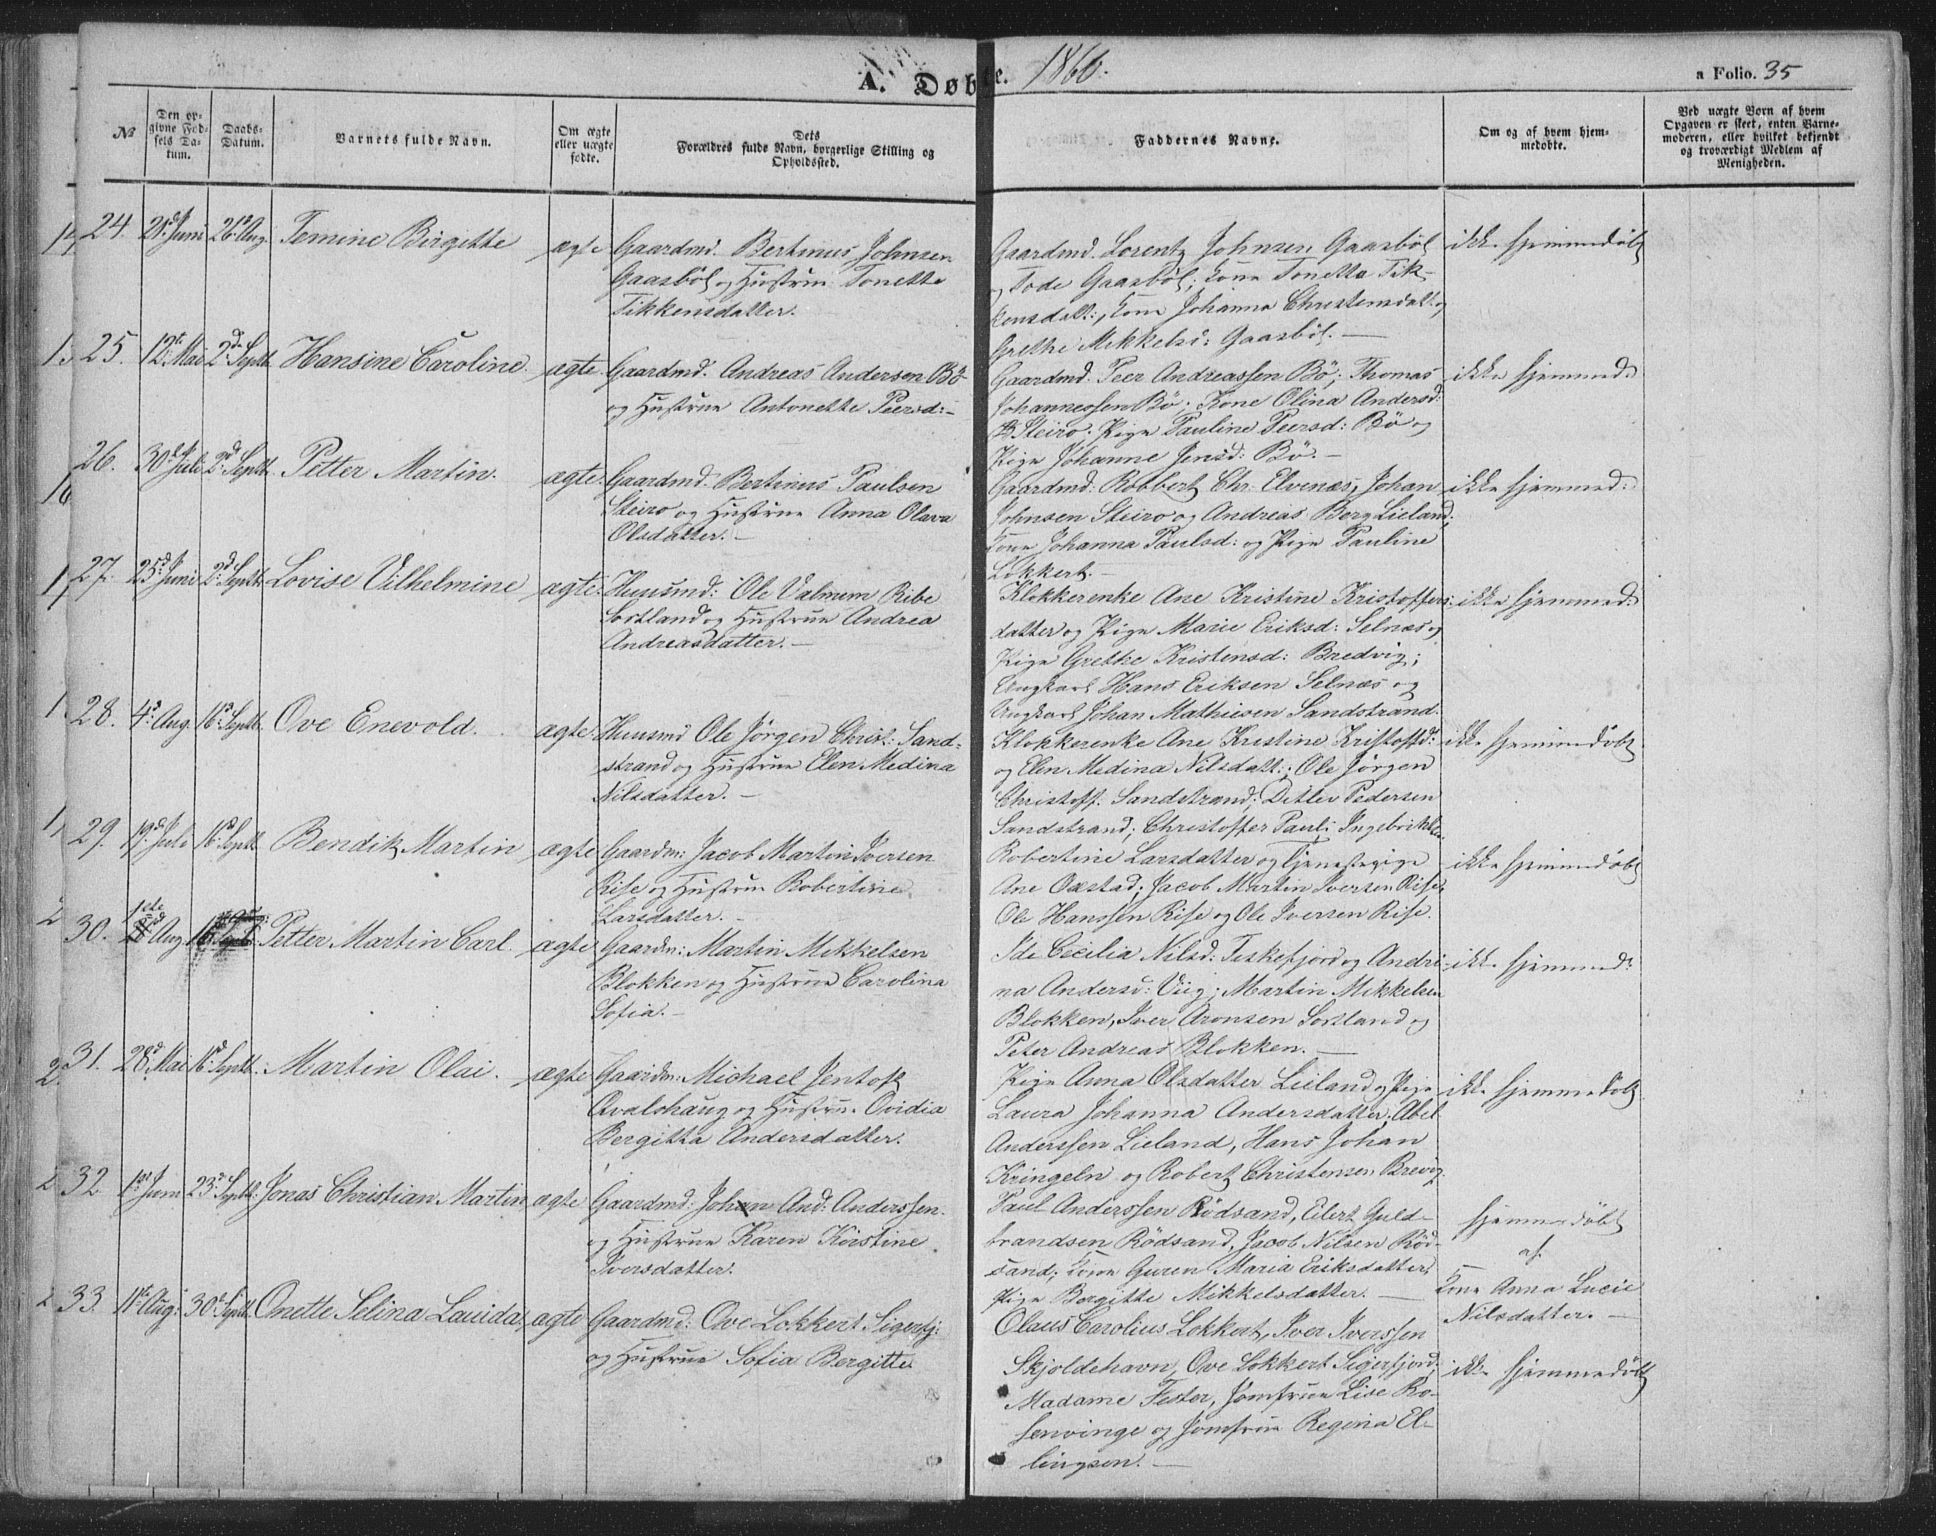 A. Døbte. 1860.
a Folio. 35
№
Den opgivne Fodsels Datum.
Daabs-Datum.
Barnets fulde Navn.
Om ægte eller uægte fødte.
Dets Forældres fulde Navn, borgerlige Stilling og Opholdssted.
Faddernes Navne.
Om og af hvem hjemmedøbte.
Ved uægte Børn af hvem Opgaven er skeet, enten Barnemoderen, eller hvilket bekjendt og troværdigt Medlem af Menigheden.
24. 21d Juni 26d Aug. Temine Birgitte ægte
Gaardmd. Bertinus Johnsen
Gaasbøl og Hustrue Tonette
Tikkensdatter.
Gaardmd. Lorentz Johnsen Gaasbøl
og Tode Gaasbøl; Kone Tonetta Tik-
kensdatt:, Kone Johanna Christensdatt: og
Grethe Mikkelsd: Gaasbøl. —
ikke hjemmedøbt
25. 12t Mai 2d Septb. Hansine Caroline. ægte.
Gaardmd. Andreas Andersen Bö
og Hustrue Antonette Peersd: —
Gaardmd. Peer Andreassen Bö; Thomas
Johannessen Bö; Kone Olina Andersd:
Steiro; Pige Pauline Peersd: Bö og
Pige Johanne Jensd: Bö. —
ikke hjemmed:
26. 30d Juli 2d Septb. Petter Martin. ægte.
Gaardmd. Bertinus Paulsen
Steiro og Hustrue Anna Olava
Olsdatter. —
Gaardmd: Robbert Chr. Elvenæs, Johan
Johnsen Steiro og Andreas Berg Lieland;
Kone Johanna Paulsd: og Pige Pauline
Lokkert. —
ikke hjemmed:
27. 25d Juni 2d Septb. Lovise Vilhelmine ægte.
Huusmd: Ole Valnum Ribe
Sortland og Hustrue Andrea
Andreasdatter. —
Klokkerenke Ane Kristine Kristoffers-
datter og Pige Marie Eriksd: Selnæs og
Pige Grethe Kristensd: Bredvig;
Ungkarl Hans Eriksen Selnæs og
Ungkarl Johan Mathiesen Sandstrand.
ikke hjemmed:
28. 4d Aug. 16d Septb. Ove Enevold. ægte.
Huusmd Ole Jørgen Christ: Sand-
strand og Hustrue Elen Medina
Nilsdatter. —
Klokkerenke Ane Kristine Kristoffd:
og Elen Medina Nilsdatt:; Ole Jørgen
Christoff. Sandstrand; Ditlev Pedersen
Sandstrand; Christoffer Paul;
ikke hjemmedøbt
29. 19d Juli 16d Septb. Bendik Martin ægte
Gaardm: Jacob Martin Iversen
Rise og Hustrue Robertine
Larsdatter. —
Robertine Larsdatter og Tjenestepige
Ane Oxstad; Jacob Martin Iversen Rise,
Ole Hanssen Rise og Ole Iversen Rise.
ikke hjemmedøbt
30. 1ste Aug Petter Martin Carl. ægte
Gaardm: Martin Mikkelsen
Blokken og Hustrue Carolina
Sofia. —
Ide Cecilia Nilsd: Teskefjord og Andri-
na Andersd: Viig; Martin Mikkelsen
Blokken, Iver Aronsen Sortland og
Peter Andreas Blokken. —
ikke hjemmed:
31. 28d Mai 16d Septb. Martin Olai. ægte
Gaardm: Michael Jentof
Qvalshaug og Hustrue Ovidia
Bergitta Andersdatter.
Pige Anna Olsdatter Lieland og Pige
Laura Johanna Andersdatter; Abel
Anderssen Lieland, Hans Johan
Kringeln og Robert Christensen Brevig.
ikke hjemmedøbt
32. 1ste Juni 23d Septb: Jonas Christian Martin ægte
Gaardmd: Johan And: Anderssen
og Hustrue Karen Kirstine
Iversdatter.
Paul Anderssen Rödsand, Eilert Guld-
brandsen Rödsand, Jacob Nilsen Röd-
sand; Kone Guren Maria Eriksdatter,
Pige Bergitte Mikkelsdatter. —
hjemmedøbt
af
Kone Anna Lucie
Nilsdatter. —
33. 11te Aug: 30te Septb. Onette Selina Lauida, ægte
Gaardmd: Ove Lokkert Sigerfj:
og Hustrue Sofia Bergitte
Olaus Carolius Lokkert, Iver Iverssen
Skjoldehavn, Ove Lokkert Sigerfjord;
Madame Fester, Jomfrue Lise Ro-
senvinge og Jomfrue Regina El-
lingsen. —
ikke hjemmedøbt